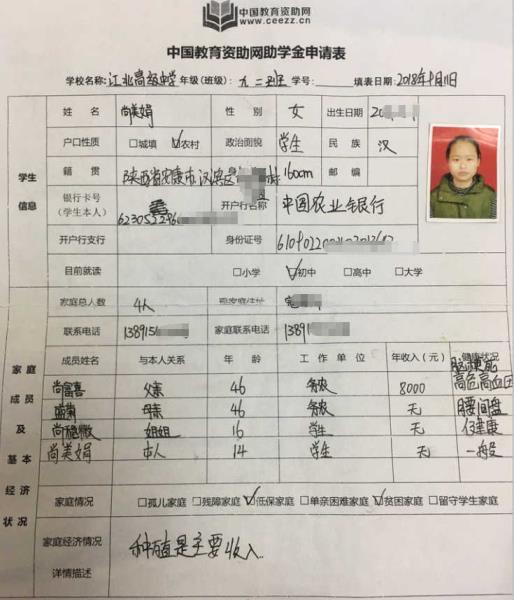 中国教育资助网
www.ceezz.cn
中国教育资助网助学金申请表
学校名称: 江北高级中学 年级(班级): 九二班 学号: 填表日期: 2018年9月11日
学生信息
姓名 尚美娟 性别 女 出生日期 20
户口性质 □城填 ☑农村 政治面貌 学生 民族 汉
籍贯 陕西省安康市汉滨区 160cm 邮编
银行卡号(学生本人) 623052296 开户行名称 中国农业银行
开户行支行 身份证号
目前就读 □小学 ☑初中 □高中 □大学
家庭成员及基本经济状况
家庭总人数 4人 现家庭住址
联系电话 138915 家庭联系电话 13891
成员姓名 与本人关系 年龄 工作单位 年收入(元) 健康状况
尚富喜 父亲 46 务农 8000 高血压
母亲 46 务农 无 腰间盘
姐姐 16 学生 无 健康
尚美娟 本人 14 学生 无 一般
家庭情况 □孤儿家庭 □残障家庭 ☑低保家庭 □单亲困难家庭 ☑贫困家庭 □留守学生家庭
家庭经济情况详情描述 种植是主要收入